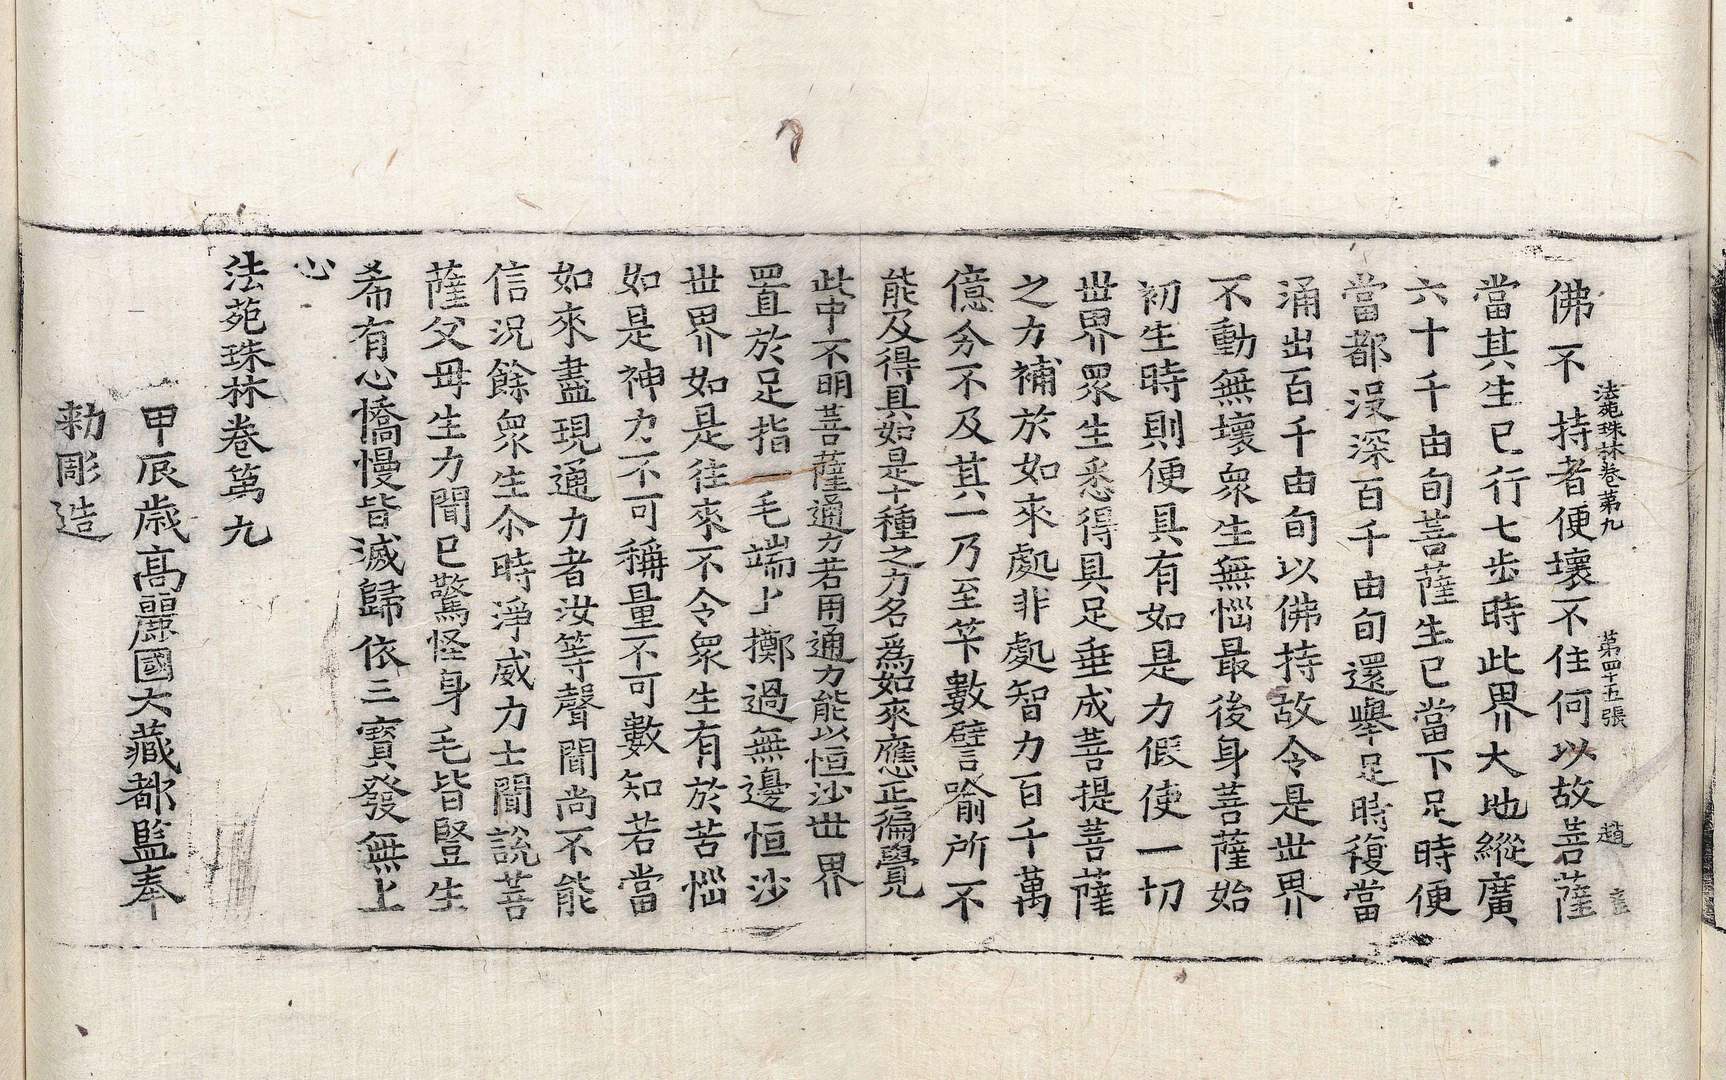 法苑珠林卷第九 第四十五張 趙
佛不持者便壞不住何以故菩薩
當其生已行七步時此界大地縱廣
六十千由旬菩薩生已當下足時便
當都沒深百千由旬還擧足時復當
涌出百千由旬以佛持故令是世界
不動無壞衆生無惱最後身菩薩始
初生時則便具有如是力假使一切
世界衆生悉得具足垂成菩提菩薩
之力補於如來處非處智力百千萬
億分不及其一乃至筭數譬喻所不
能及得具如是十種之力名爲如來應正徧覺
此中不明菩薩通力若用通力能以恒沙世界
置於足指一毛端上擲過無邊恒沙
世界如是往來不令衆生有於苦惱
如是神力不可稱量不可數知若當
如來盡現通力者汝等聲聞尚不能
信況餘衆生尒時淨威力士聞說菩
薩父母生力聞已驚怪身毛皆豎生
希有心憍慢皆滅歸依三寶發無上
心
法苑珠林卷第九
甲辰歲高麗國大藏都監奉
勅彫造